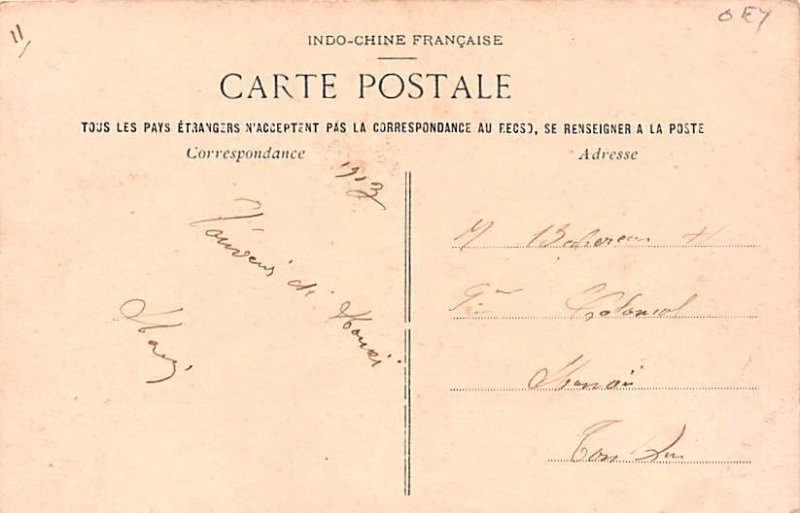 11/
OEY
INDO-CHINE FRANÇAISE
CARTE POSTALE
TOUS LES PAYS ÉTRANGERS N'ACCEPTENT PAS LA CORRESPONDANCE AU RECSO, SE RENSEIGNER A LA POSTE
Correspondance
Adresse
1913
Souvenir de Hanoi
M
Colonial
Hanoï
Tonkin